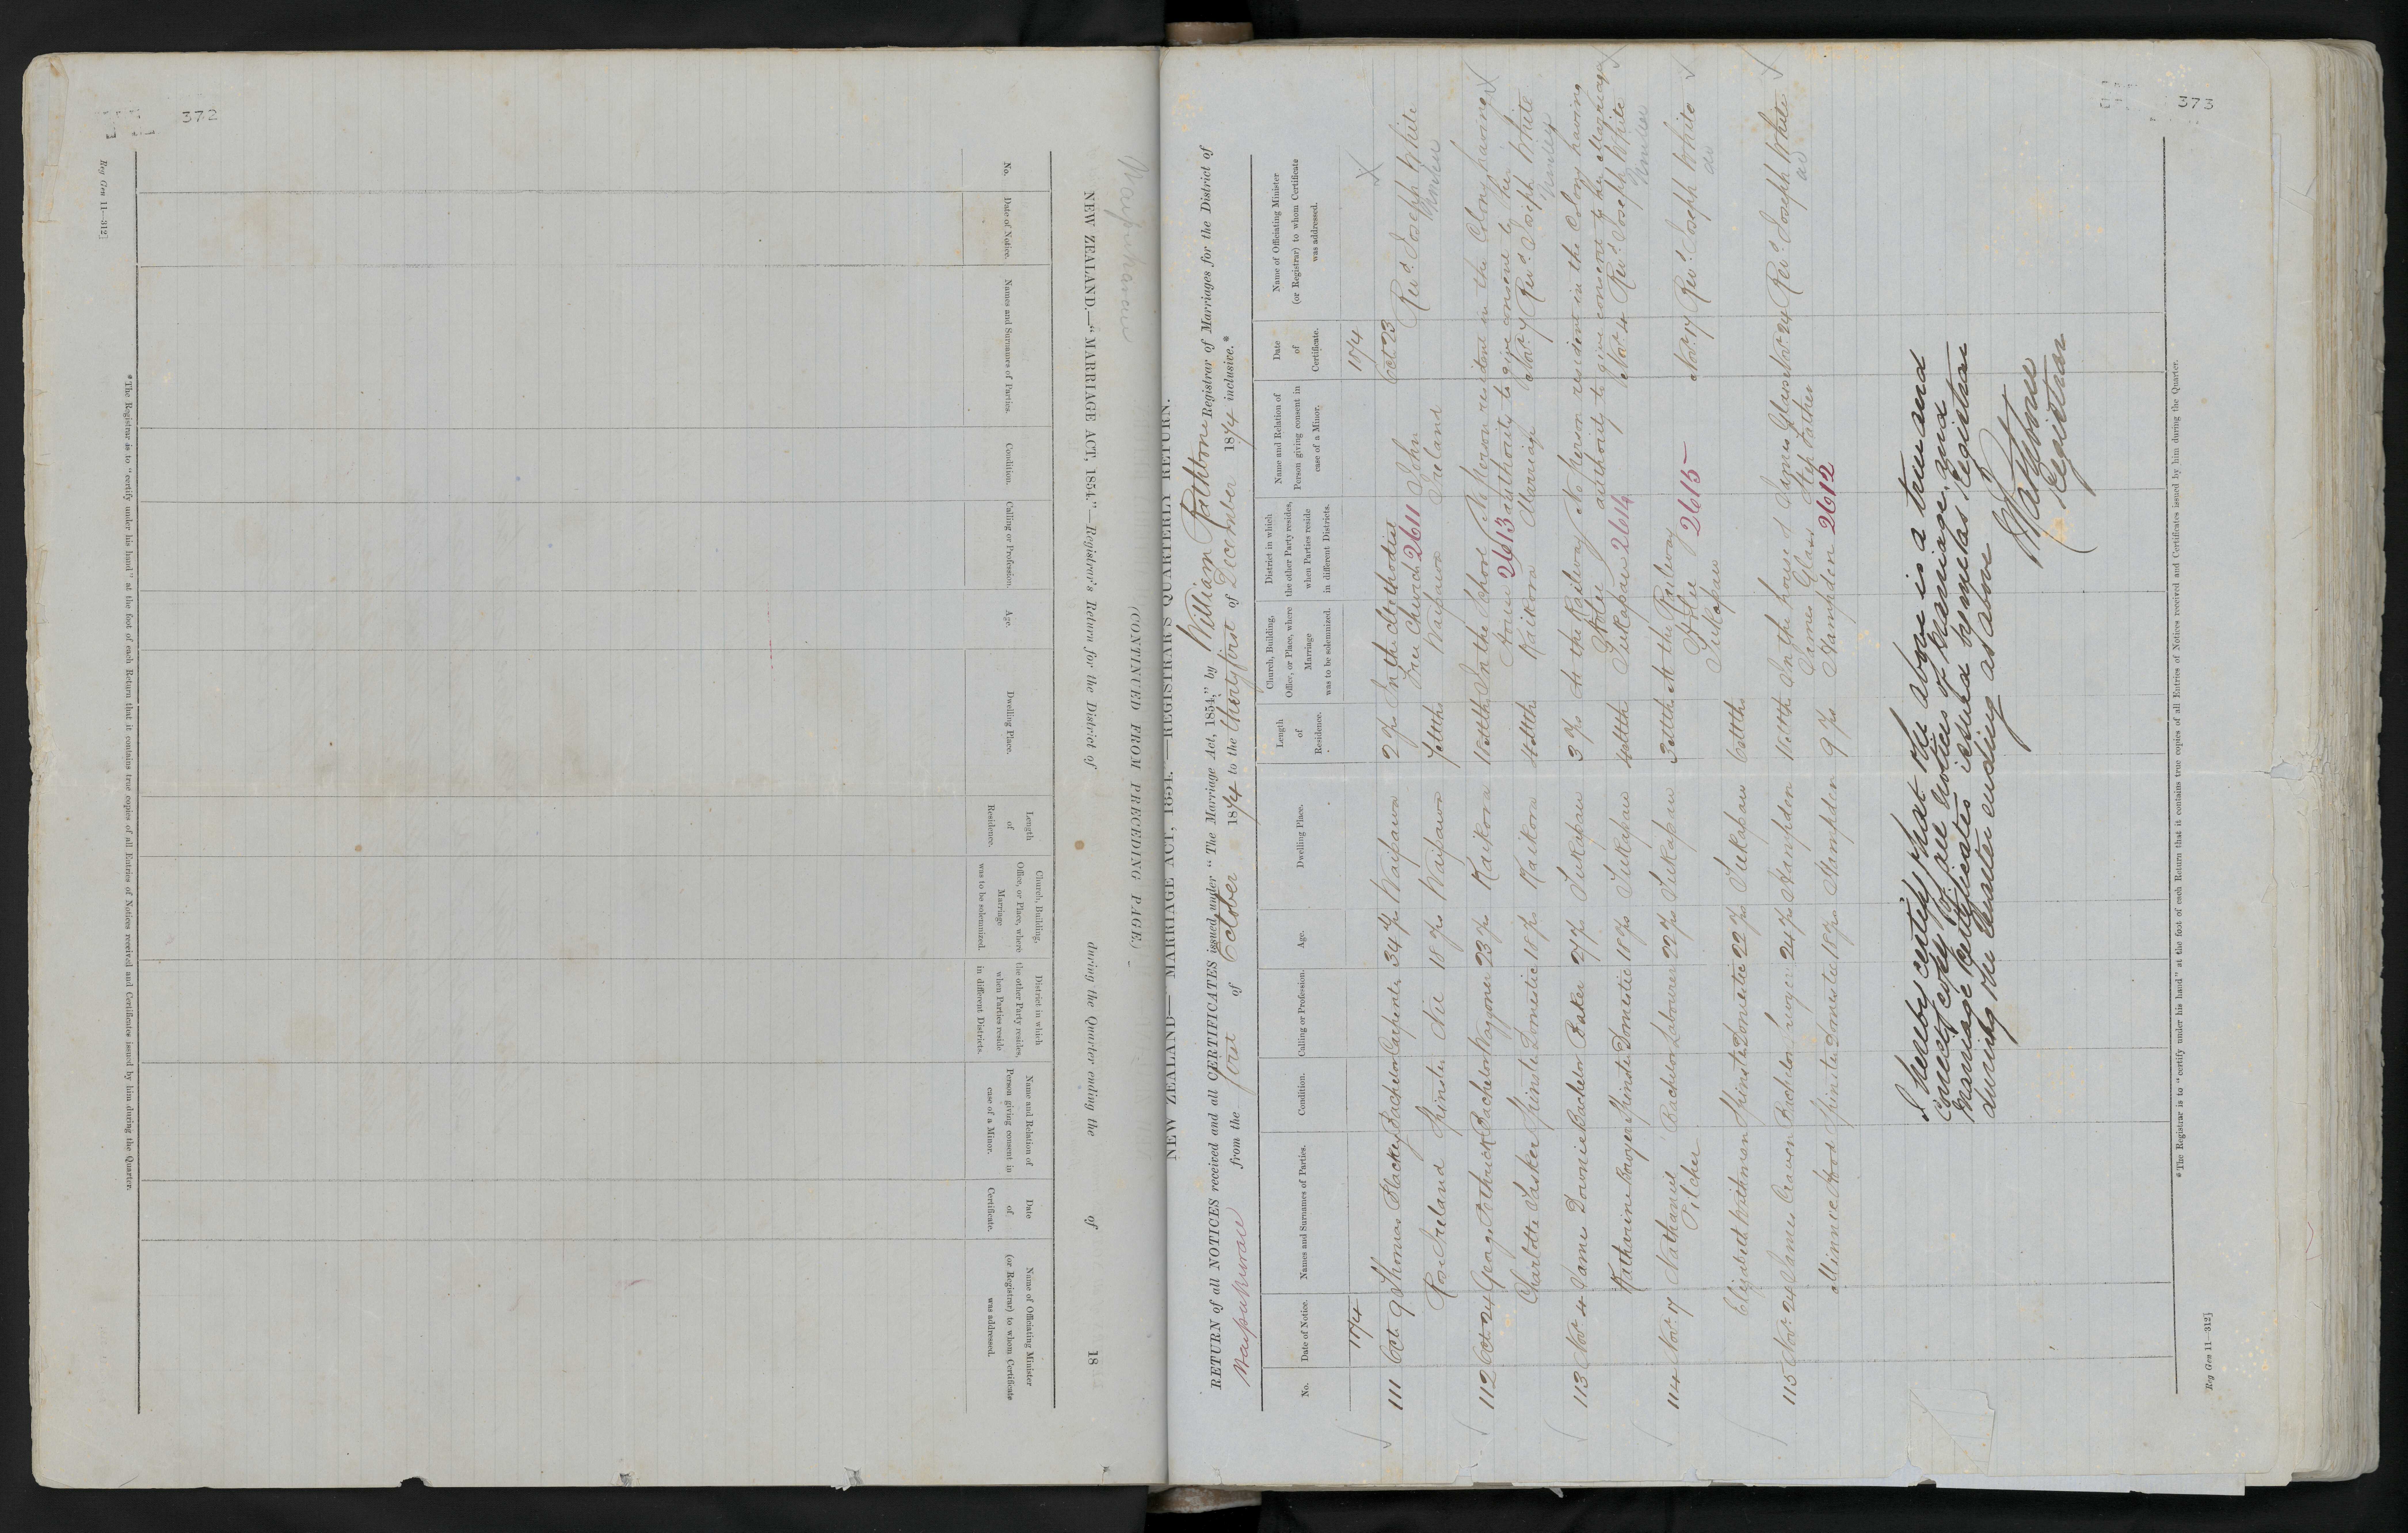 372
Reg Gen 11—312]
Waipukurau
NEW ZEALAND.—"MARRIAGE ACT, 1854."—Registrar's Return for the District of during the Quarter ending the of 18
(CONTINUED FROM PRECEDING PAGE.)
No. Date of Notice. Names and Surnames of Parties. Condition. Calling or Profession. Age. Dwelling Place. Length of Residence. Church, Building, Office, or Place, where Marriage was to be solemnized. District in which the other Party resides, when Parties reside in different Districts. Name and Relation of Person giving consent in case of a Minor. Date of Certificate. Name of Officiating Minister (or Registrar) to whom Certificate was addressed.
*The Registrar is to "certify under his hand" at the foot of each Return that it contains true copies of all Entries of Notices received and Certificates issued by him during the Quarter.
373
NEW ZEALAND—"MARRIAGE ACT, 1854."—REGISTRAR'S QUARTERLY RETURN.
RETURN of all NOTICES received and all CERTIFICATES issued under "The Marriage Act, 1854," by William Rathbone Registrar of Marriages for the District of
Waipukurau from the first of October 1874 to the thirty first of December 1874 inclusive.*
No. Date of Notice. Names and Surnames of Parties. Condition. Calling or Profession. Age. Dwelling Place. Length of Residence. Church, Building, Office, or Place, where Marriage was to be solemnized. District in which the other Party resides, when Parties reside in different Districts. Name and Relation of Person giving consent in case of a Minor. Date of Certificate. Name of Officiating Minister (or Registrar) to whom Certificate was addressed.
1874 1874
111 Oct 9 Thomas Bachelor Carpenter 34 yrs Waipawa 2 yrs In the Methodist Oct 23
Free Church 2611 John Revd. Joseph White
Rose Ireland Spinster 18 yrs Waipawa 7 Mths Waipawa Ireland
112 Oct 24 George Bachelor Waggoner 23 yrs Kaikora In the School No person resident in the Colony having
2613 authority to give consent to the
Charlotte Tasker Spinster Domestic 18 yrs Kaikora 4 Mth Kaikora Marriage Nov. 7 Revd. Joseph White
113 Nov. 4 James Downie Bachelor Baker 27 yrs Tukapau 3 yrs At the Railway No person resident in the Colony having
Hotel authority to give consent to the Marriage
Katharine Spinster Domestic 18 yrs Tukapau 4 Mth Tukapau 2614 Nov. 4 Revd. Joseph White
114 Nov. 7 Nathaniel Bachelor Labourer 22 yrs Tukapau 3 Mth At the Railway Nov. 17 Revd. Joseph White
Pilcher Hotel 2615 do
Elizabeth Spinster Domestic 22 yrs Tukapau 6 Mths Tukapau
115 Nov. 24 James Bachelor 24 yrs Hampden In the house of James Glass Nov. 24 Revd. Joseph White
James Glass Step Father do
Minnie Wood Spinster Domestic 18 yrs Hampden 9 yrs Hampden 2612
I hereby certify that the above is a true and
correct copy of all notices of marriage and
marriage certificates issued by me as Registrar
during the Quarter ending as above
W Rathbone
Registrar
*The Registrar is to "certify under his hand" at the foot of each Return that it contains true copies of all Entries of Notices received and Certificates issued by him during the Quarter.
Reg Gen 11—312]